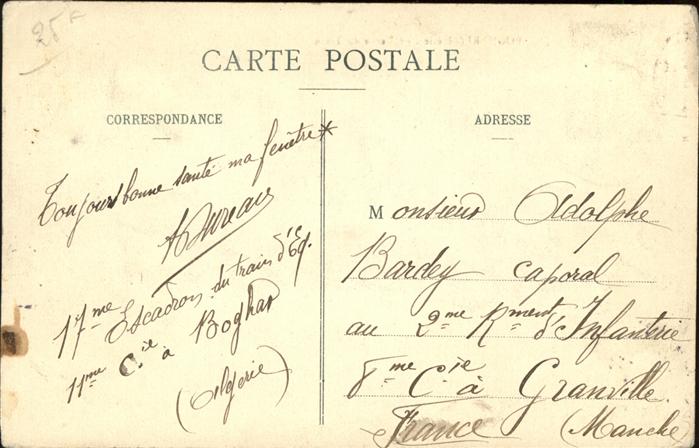 25F
CARTE POSTALE
CORRESPONDANCE
Toujours bonne santé ma fenêtre *
17me Escadron du train d'Eq.
11me Cie à Boghar
(Algérie)
ADRESSE
Monsieur Adolphe
Bardey caporal
au 2me Rment d'Infanterie
8me Cie à Granville
France (Manche)